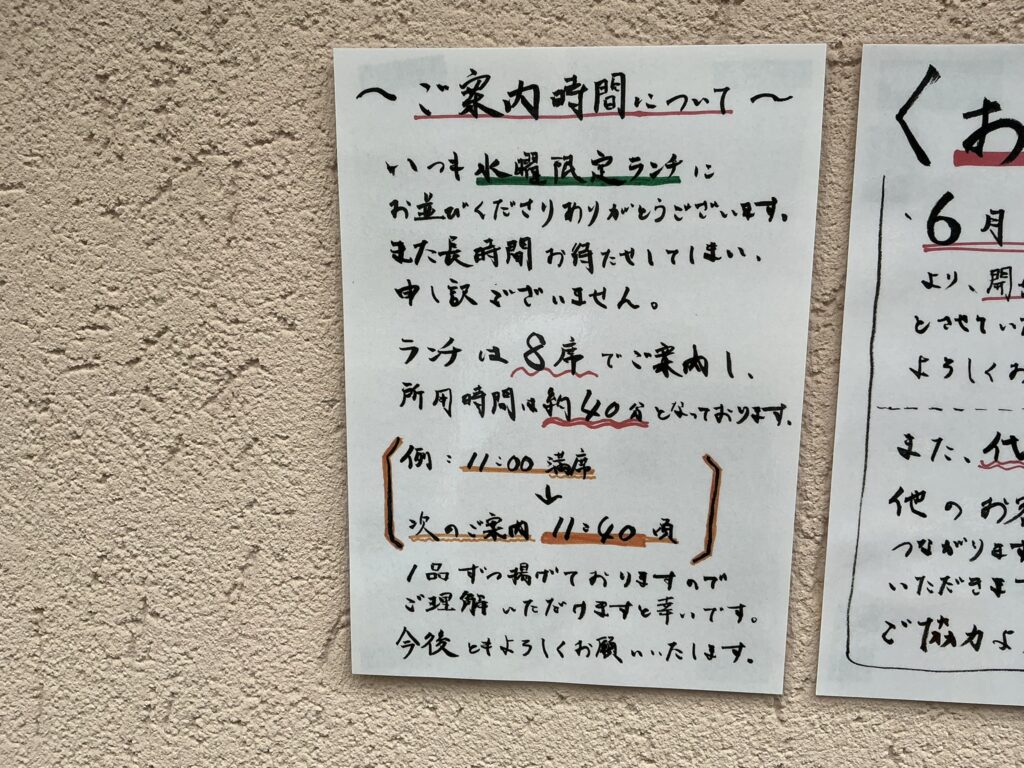 ～ご案内時間について～
いつも水曜限定ランチに
お並びくださりありがとうございます。
また長時間お待たせしてしまい、
申し訳ございません。
ランチは8席でご案内し、
所用時間は約40分となっております。
例：11:00 満席
↓
次のご案内 11:40頃
1品ずつ揚げておりますので
ご理解いただけますと幸いです。
今後ともよろしくお願いいたします。
くお
6月
より、開
とさせてい
よろしくお
また、代
他のお客
つながります
いただきま
ご協力よ